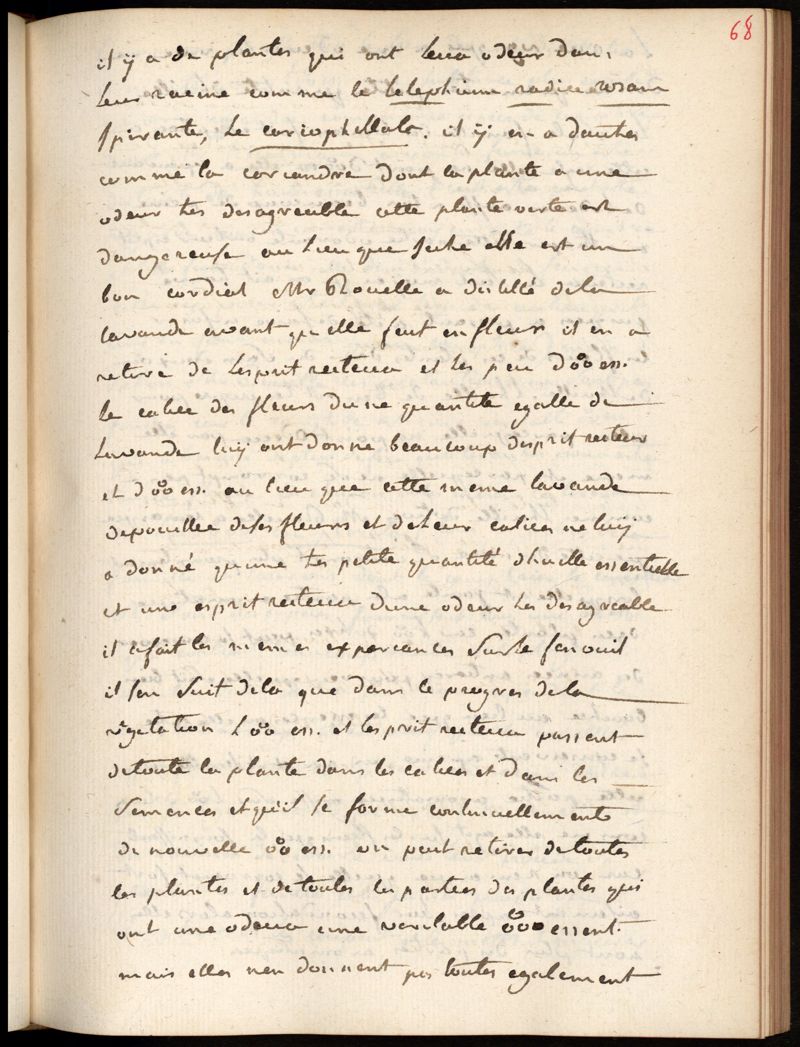 68
il ÿ a de plantes qui ont leur odeur dans
leur racine comme le telephium radice rosam
spirante, le cariophillata. il ÿ en a dautres
comme la coriandre dont la plante a une
odeur tres desagreable cette plante verte est
dangereuse au lieu que seche elle est un
bon cordial Mr Rouelle a distillé de la
lavande avant quelle feut en fleurs il en a
retiré de lesprit recteur et tres peu d ess.
le calice des fleurs dune quantite egalle de
lavande luy ont donne beaucoup desprit recteur
et d ess. au lieu que cette meme lavande
depouillee de ses fleurs et de leur calices ne luÿ
a donné quune tres petite quantité dhuille essentielle
et une esprit recteur dune odeur tres desagreable
il a fait les memes experiances sur le fenouil
il sen suit de la que dans le progres de la
vegetation l ess. et lesprit recteur passent
de toute la plante dans les calices et dans les
semences et quil se forme continuellement
de nouvelle ess. on peut retirer de toutes
les plantes et de toutes les parties des plantes qui
ont une odeur une veritable essent.
mais elles nen donnent pas toutes egalement